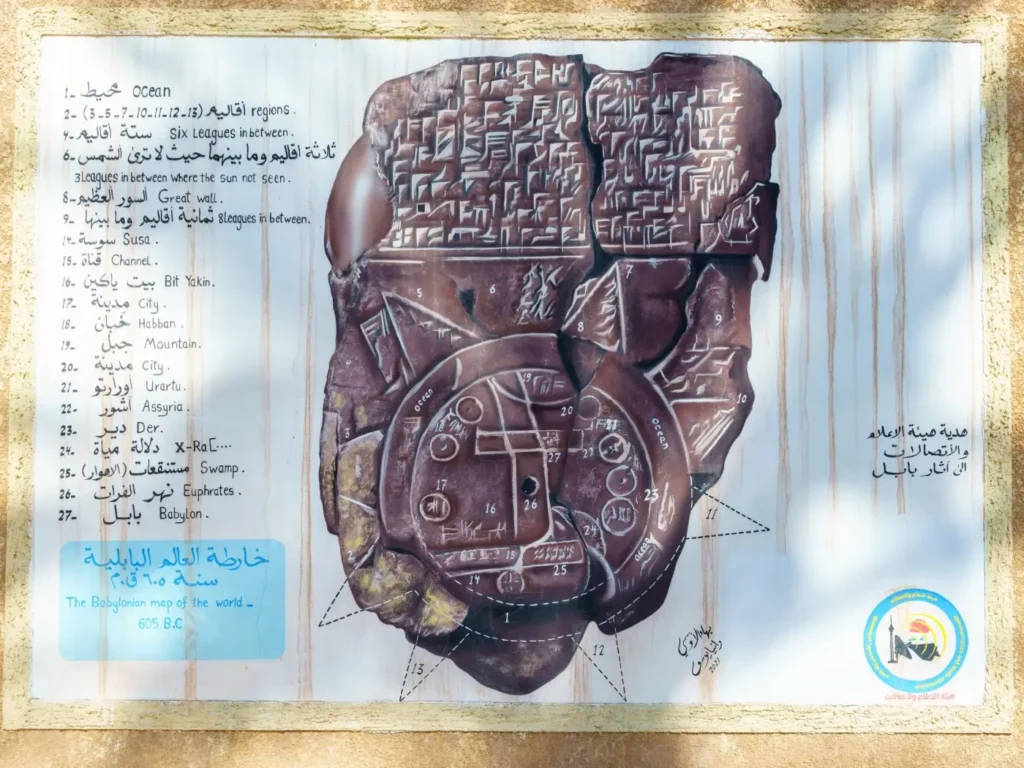 1- محيط Ocean
2- (3-5-7-10-11-12-13) أقاليم regions.
4- ستة أقاليم Six Leagues in between.
6- ثلاثة اقاليم وما بينهما حيث لا ترى الشمس
3 Leagues in between where the sun not seen.
8- السور العظيم Great wall.
9- ثمانية أقاليم وما بينها 8 Leagues in between.
14- سوسة Susa.
15- قناة Channel.
16- بيت ياكين Bit Yakin.
17- مدينة City.
18- خبان Habban.
19- جبل Mountain.
20- مدينة City.
21- اورارتو Urartu.
22- آشور Assyria.
23- دير Der.
24- دلالة مياة X-Ra[....
25- مستنقعات (الاهوار) Swamp.
26- نهر الفرات Euphrates.
27- بابل Babylon.
خارطة العالم البابلية
سنة ٦٠٥ ق.م
The Babylonian map of the world -
605 B.C
5
6
7
8
9
10
3
ocean
19
20
ocean
18
27
22
17
16
26
23
24
ocean
15
25
14
2
1
11
12
13
2021
هدية هيئة الاعلام
والأتصالات
الى آثار بابل
هيئة الاعلام والاتصالات